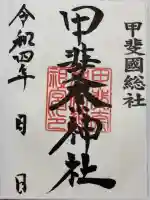 甲斐國総社
甲斐奈神社
令和四年 月 日